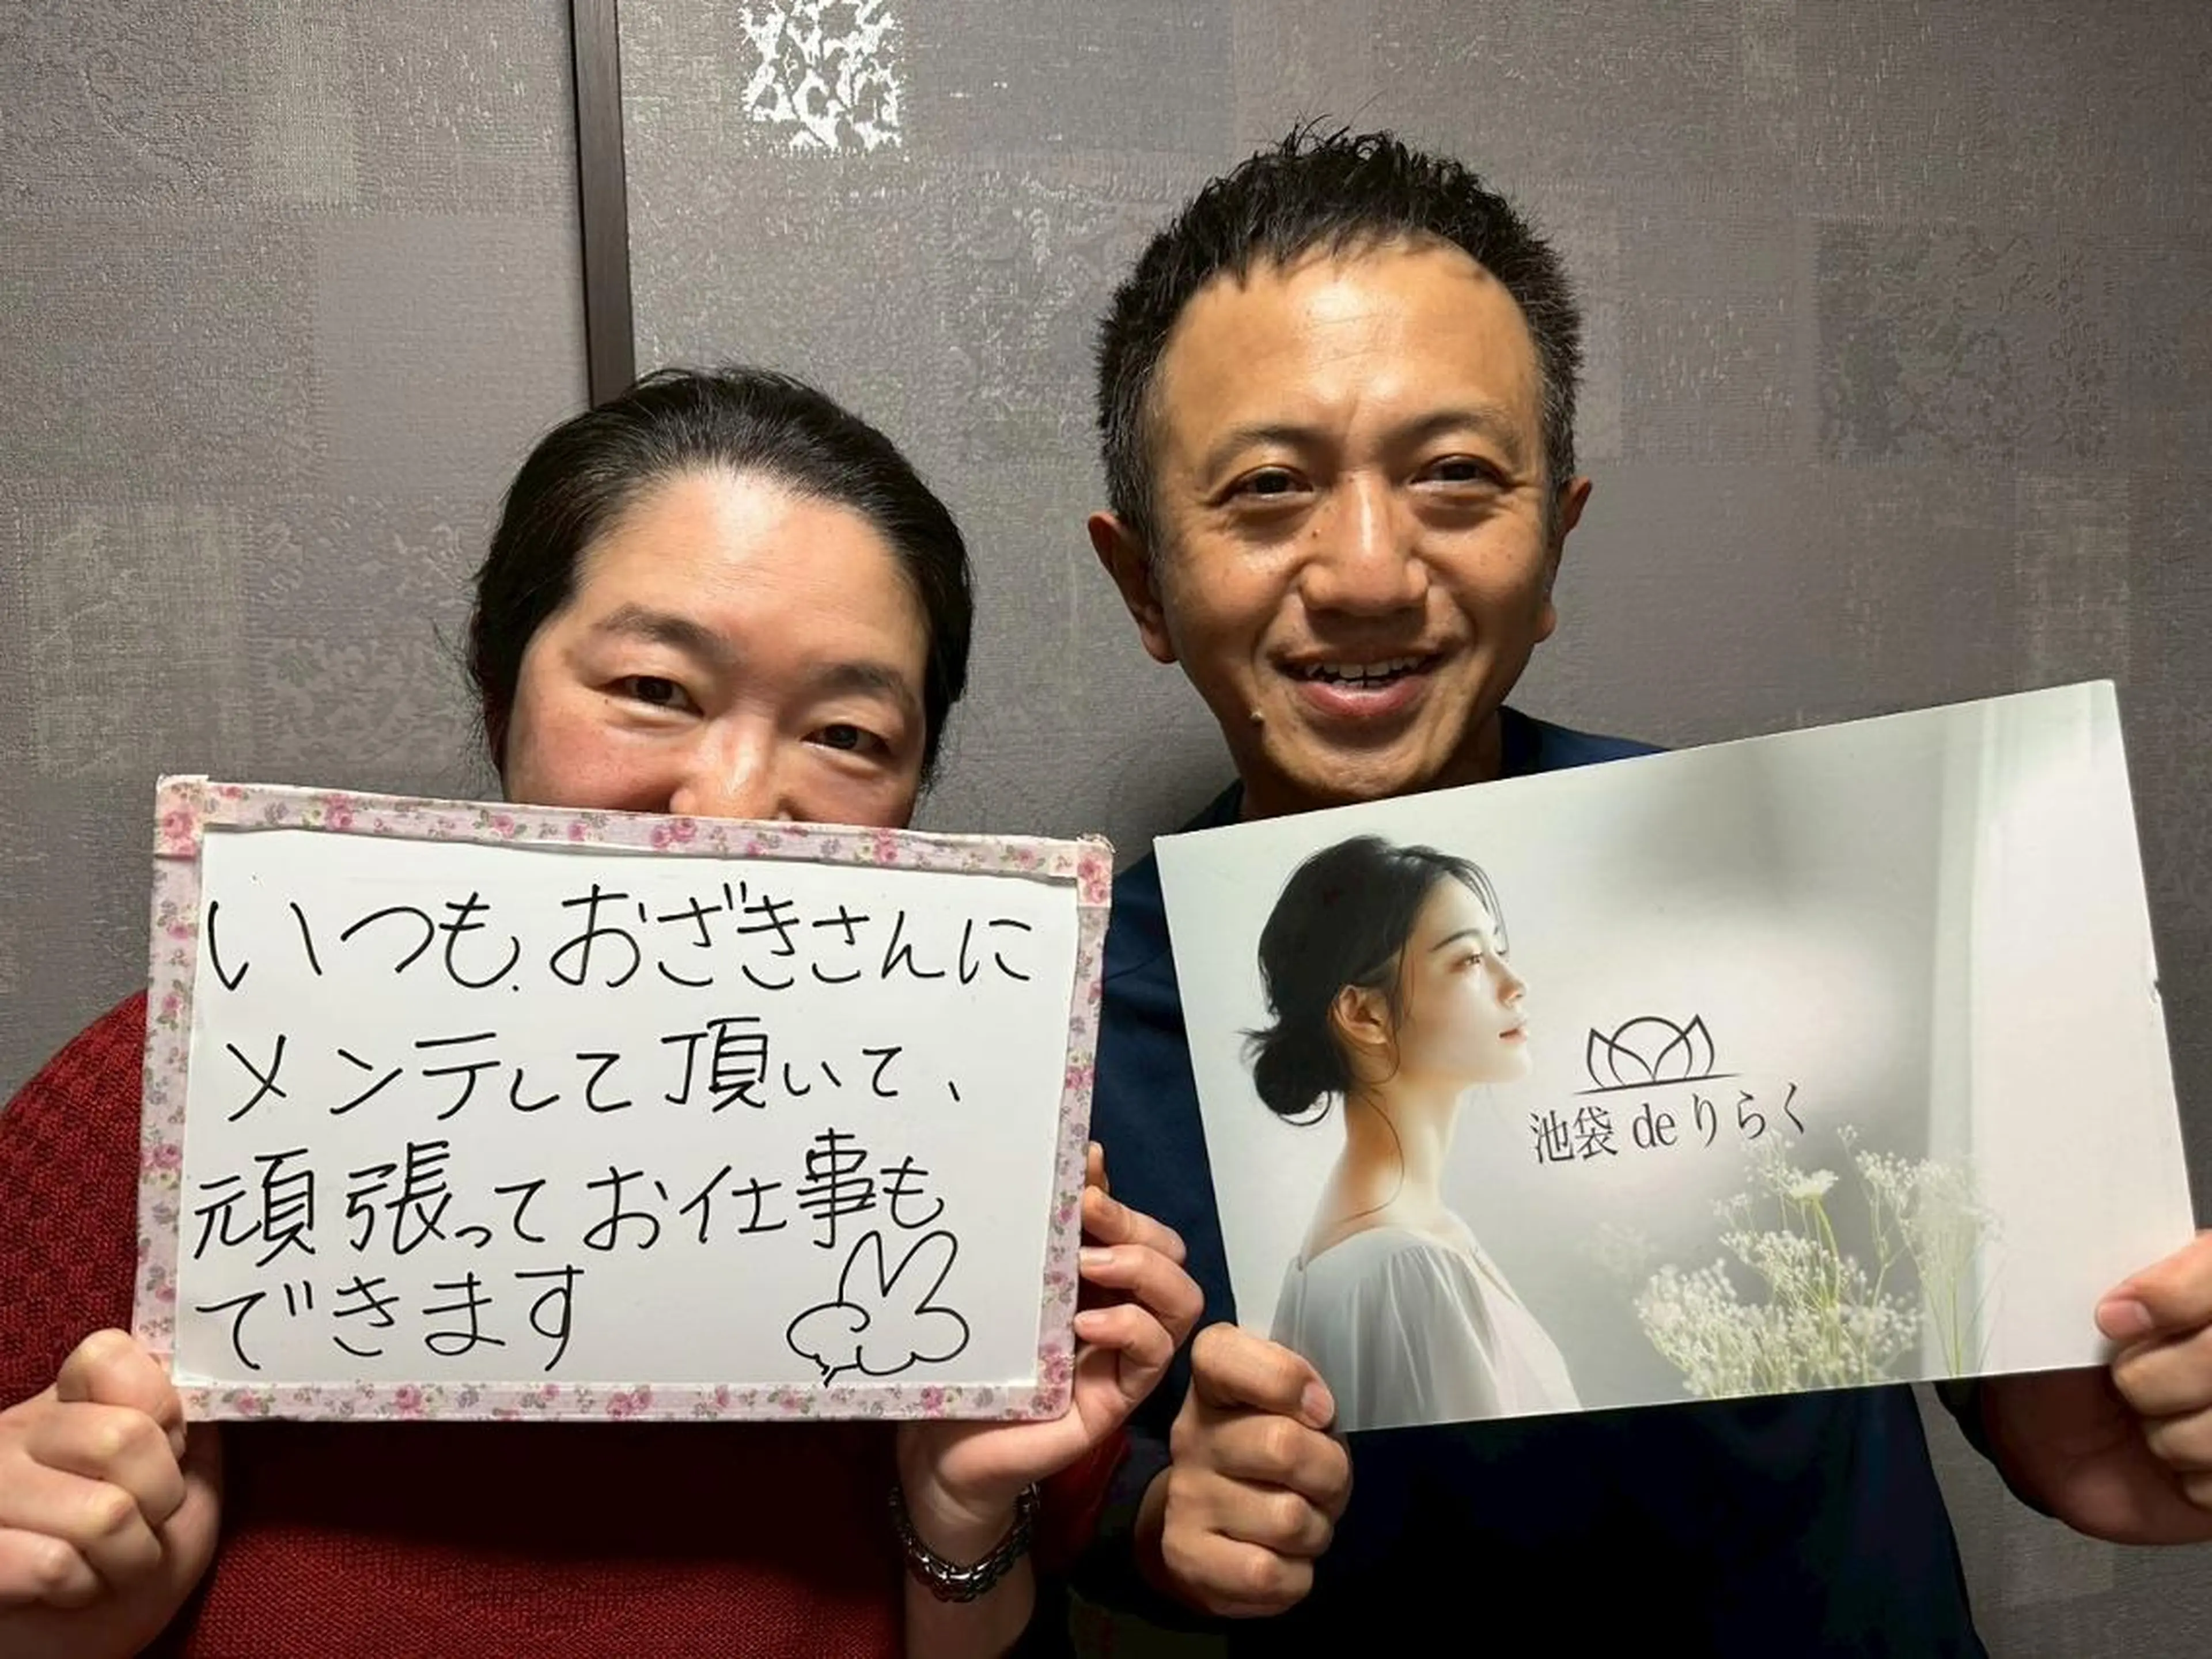 いつも、おざきさんに
メンテして頂いて、
頑張ってお仕事も
できます
池袋 de りらく